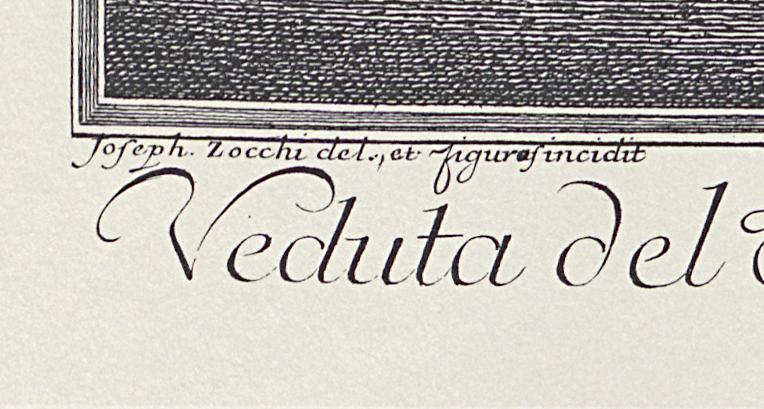 Joseph. Zocchi del., et figuras incidit
Veduta del